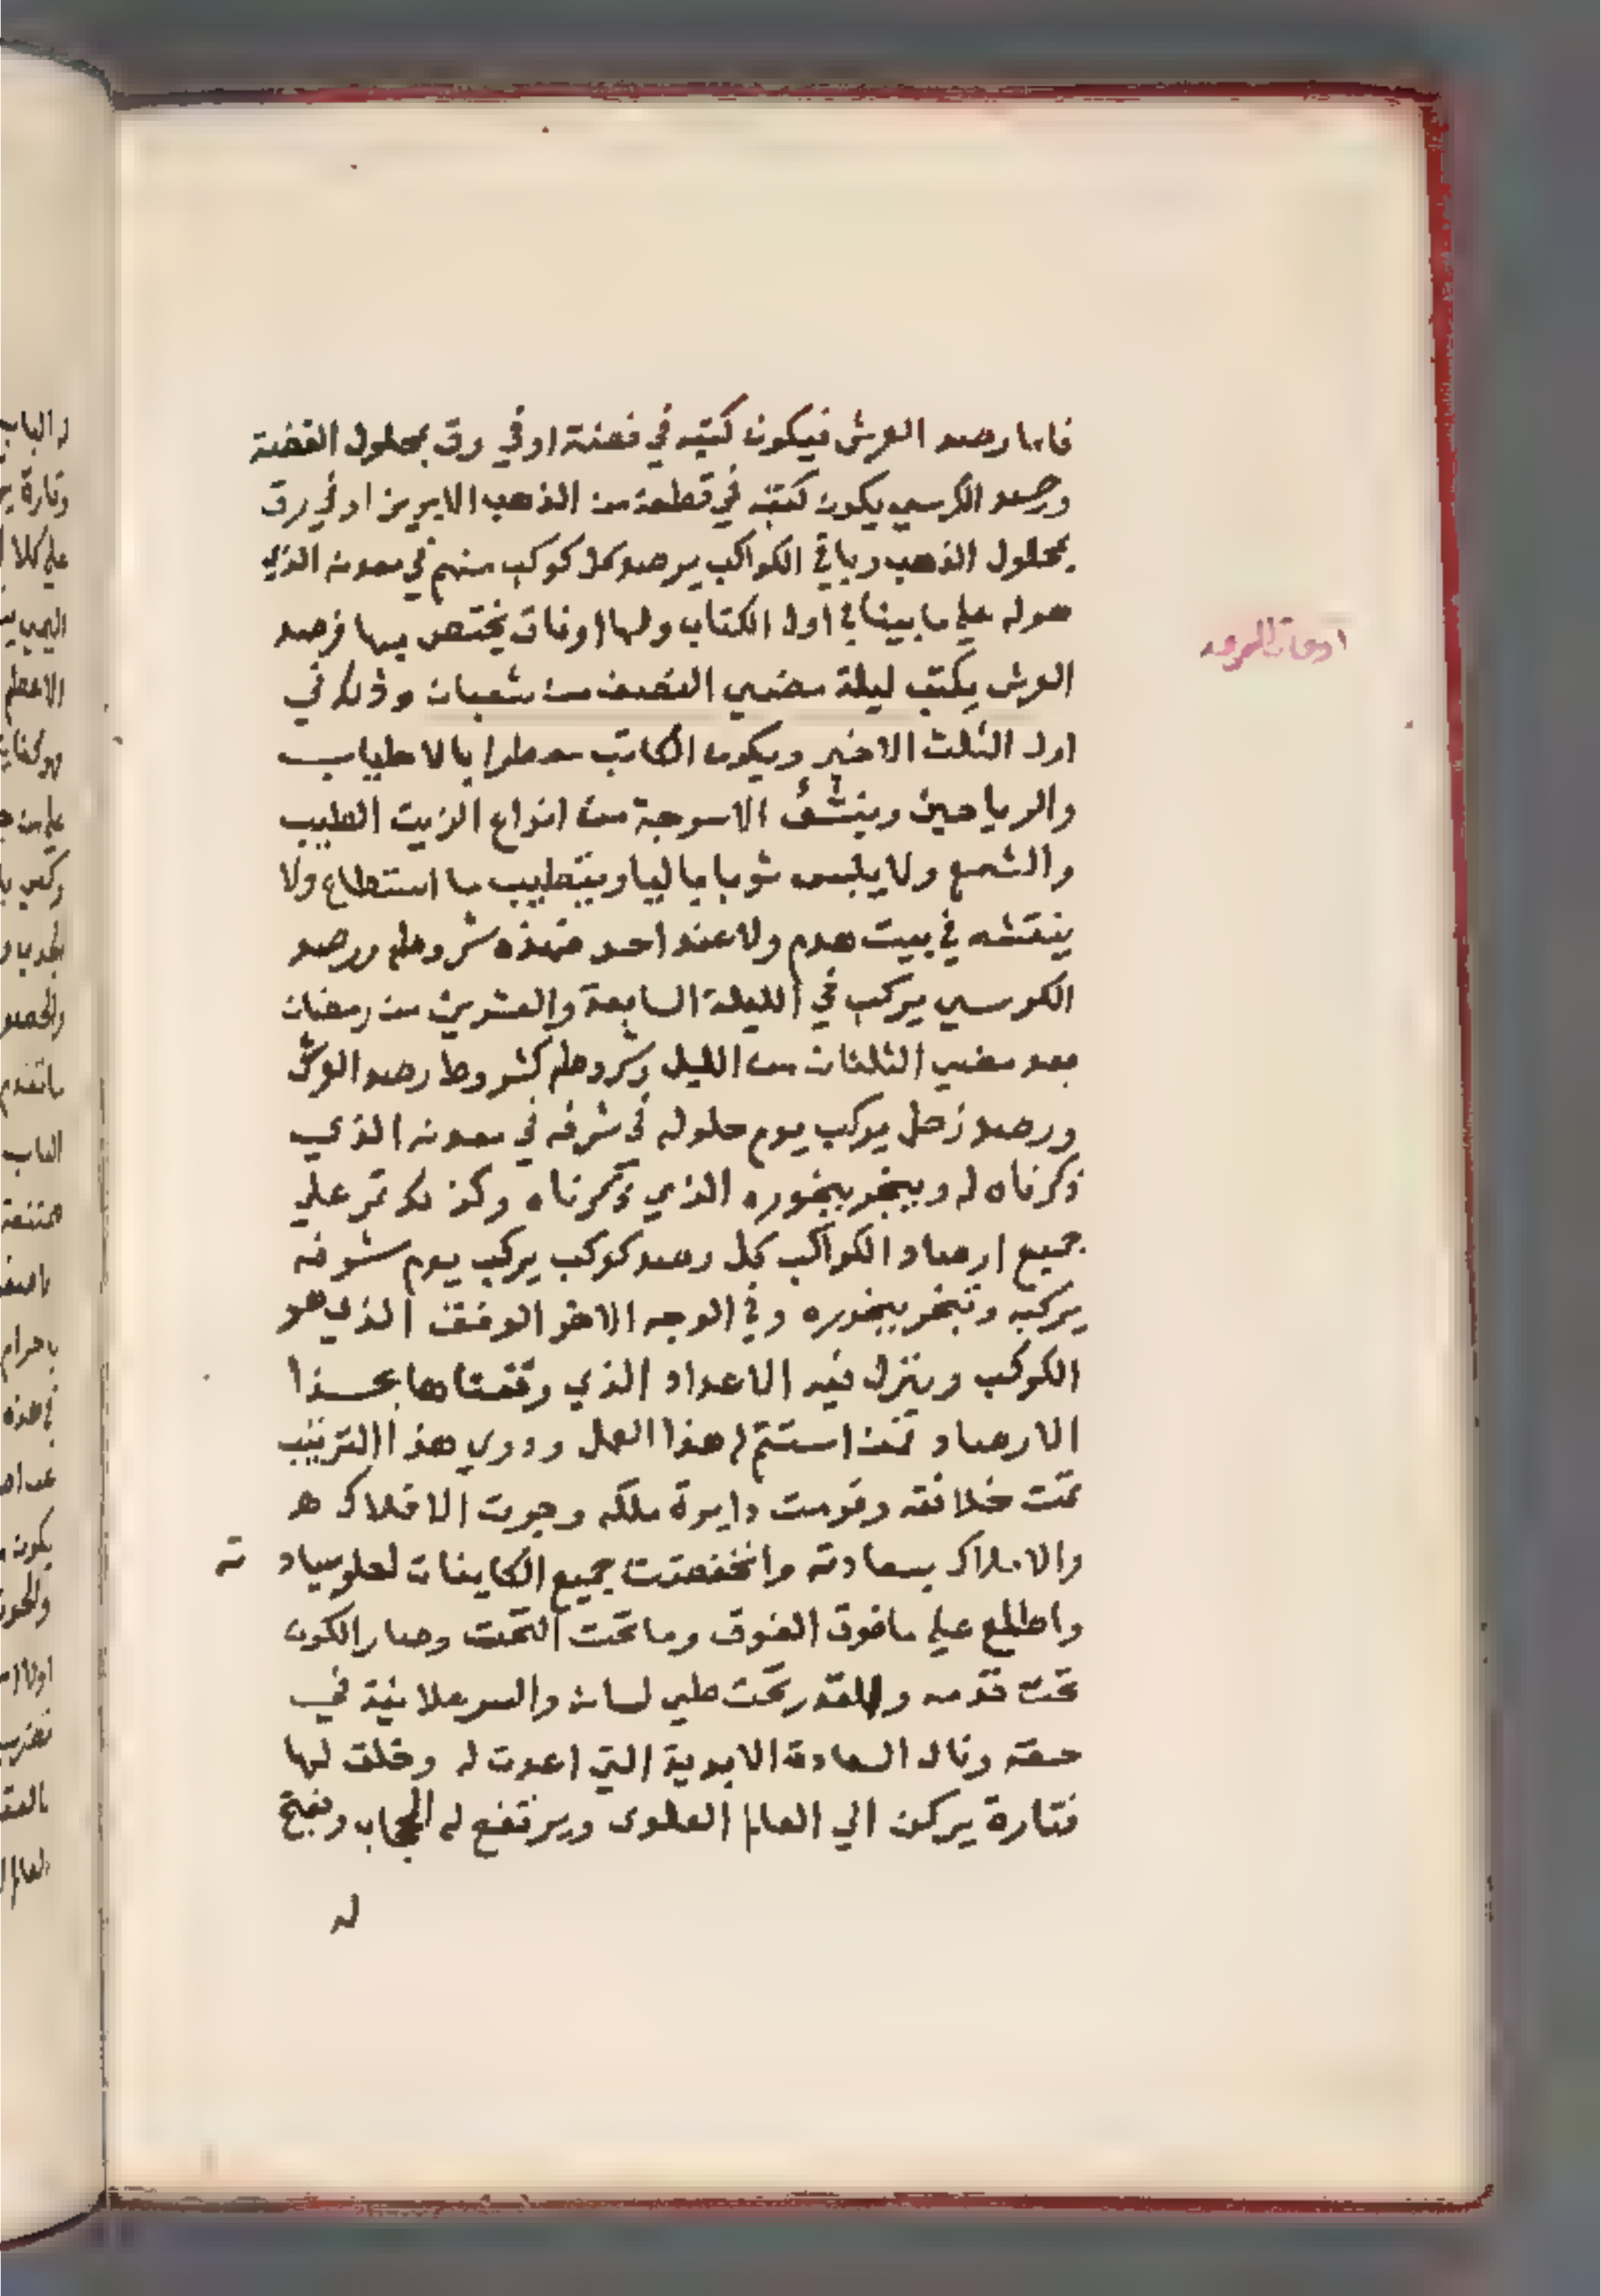 فاما رصد العرش فيكون كتبه في فضة او في رق بمحلول الفضة
ورصد الكرسي يكون كتبه في قطعة من الذهب الابريز او في رق
بمحلول الذهب وباقي الكواكب يرصد كل كوكب منهم في معدنه الذي
هو له علي ما بينا في اول الكتاب ولها اوقات يختص بها فرصد
العرش يكتب ليلة مضي النصف من شعبان وذلك في
اول الثلث الاخير ويكون الكاتب معطرا بالاطياب
والرياحين وينشف الاسرجة من انواع الزيت الطيب
والشمع ولا يلبس ثوبا باليا ويتطيب ما استطاع ولا
ينقشه في بيت هدم ولا عند احد فهذه شروطه ورصد
الكرسي يركب في الليلة السابعة والعشرين من رمضان
بعد مضي الثلثان من الليل وشروطه كشروط رصد العرش
ورصد زحل يركب يوم حلوله في شرفه في معدنه الذي
ذكرناه له ويبخر ببخوره الذي ذكرناه وكذلك تمر علي
جميع ارصاد الكواكب كل رصد كوكب يركب يوم شرفه
يركبه وتبخر ببخوره وفي الوجه الاخر الوفق الذي هو
الكوكب وينزل فيه الاعداد الذي وقفناها بحذا
الارصاد فمن استتم له هذا العمل ودري هذا الترتيب
تمت خلافته وقومت دايرة ملكه وجرت الافلاك هـ
والاملاك بسعادته وانخفضت جميع الكاينات لعلو سيادته
واطلع علي ما فوق الفوق وما تحت التحت وصار الكون
تحت قدمه والقدر تحت طي لسان والسر علانية في
حقه ونال السعادة الابدية التي اعدت له وخلق لها
فتارة يركن الي العالم العلوي ويرتفع له الحجاب وتفتح
له